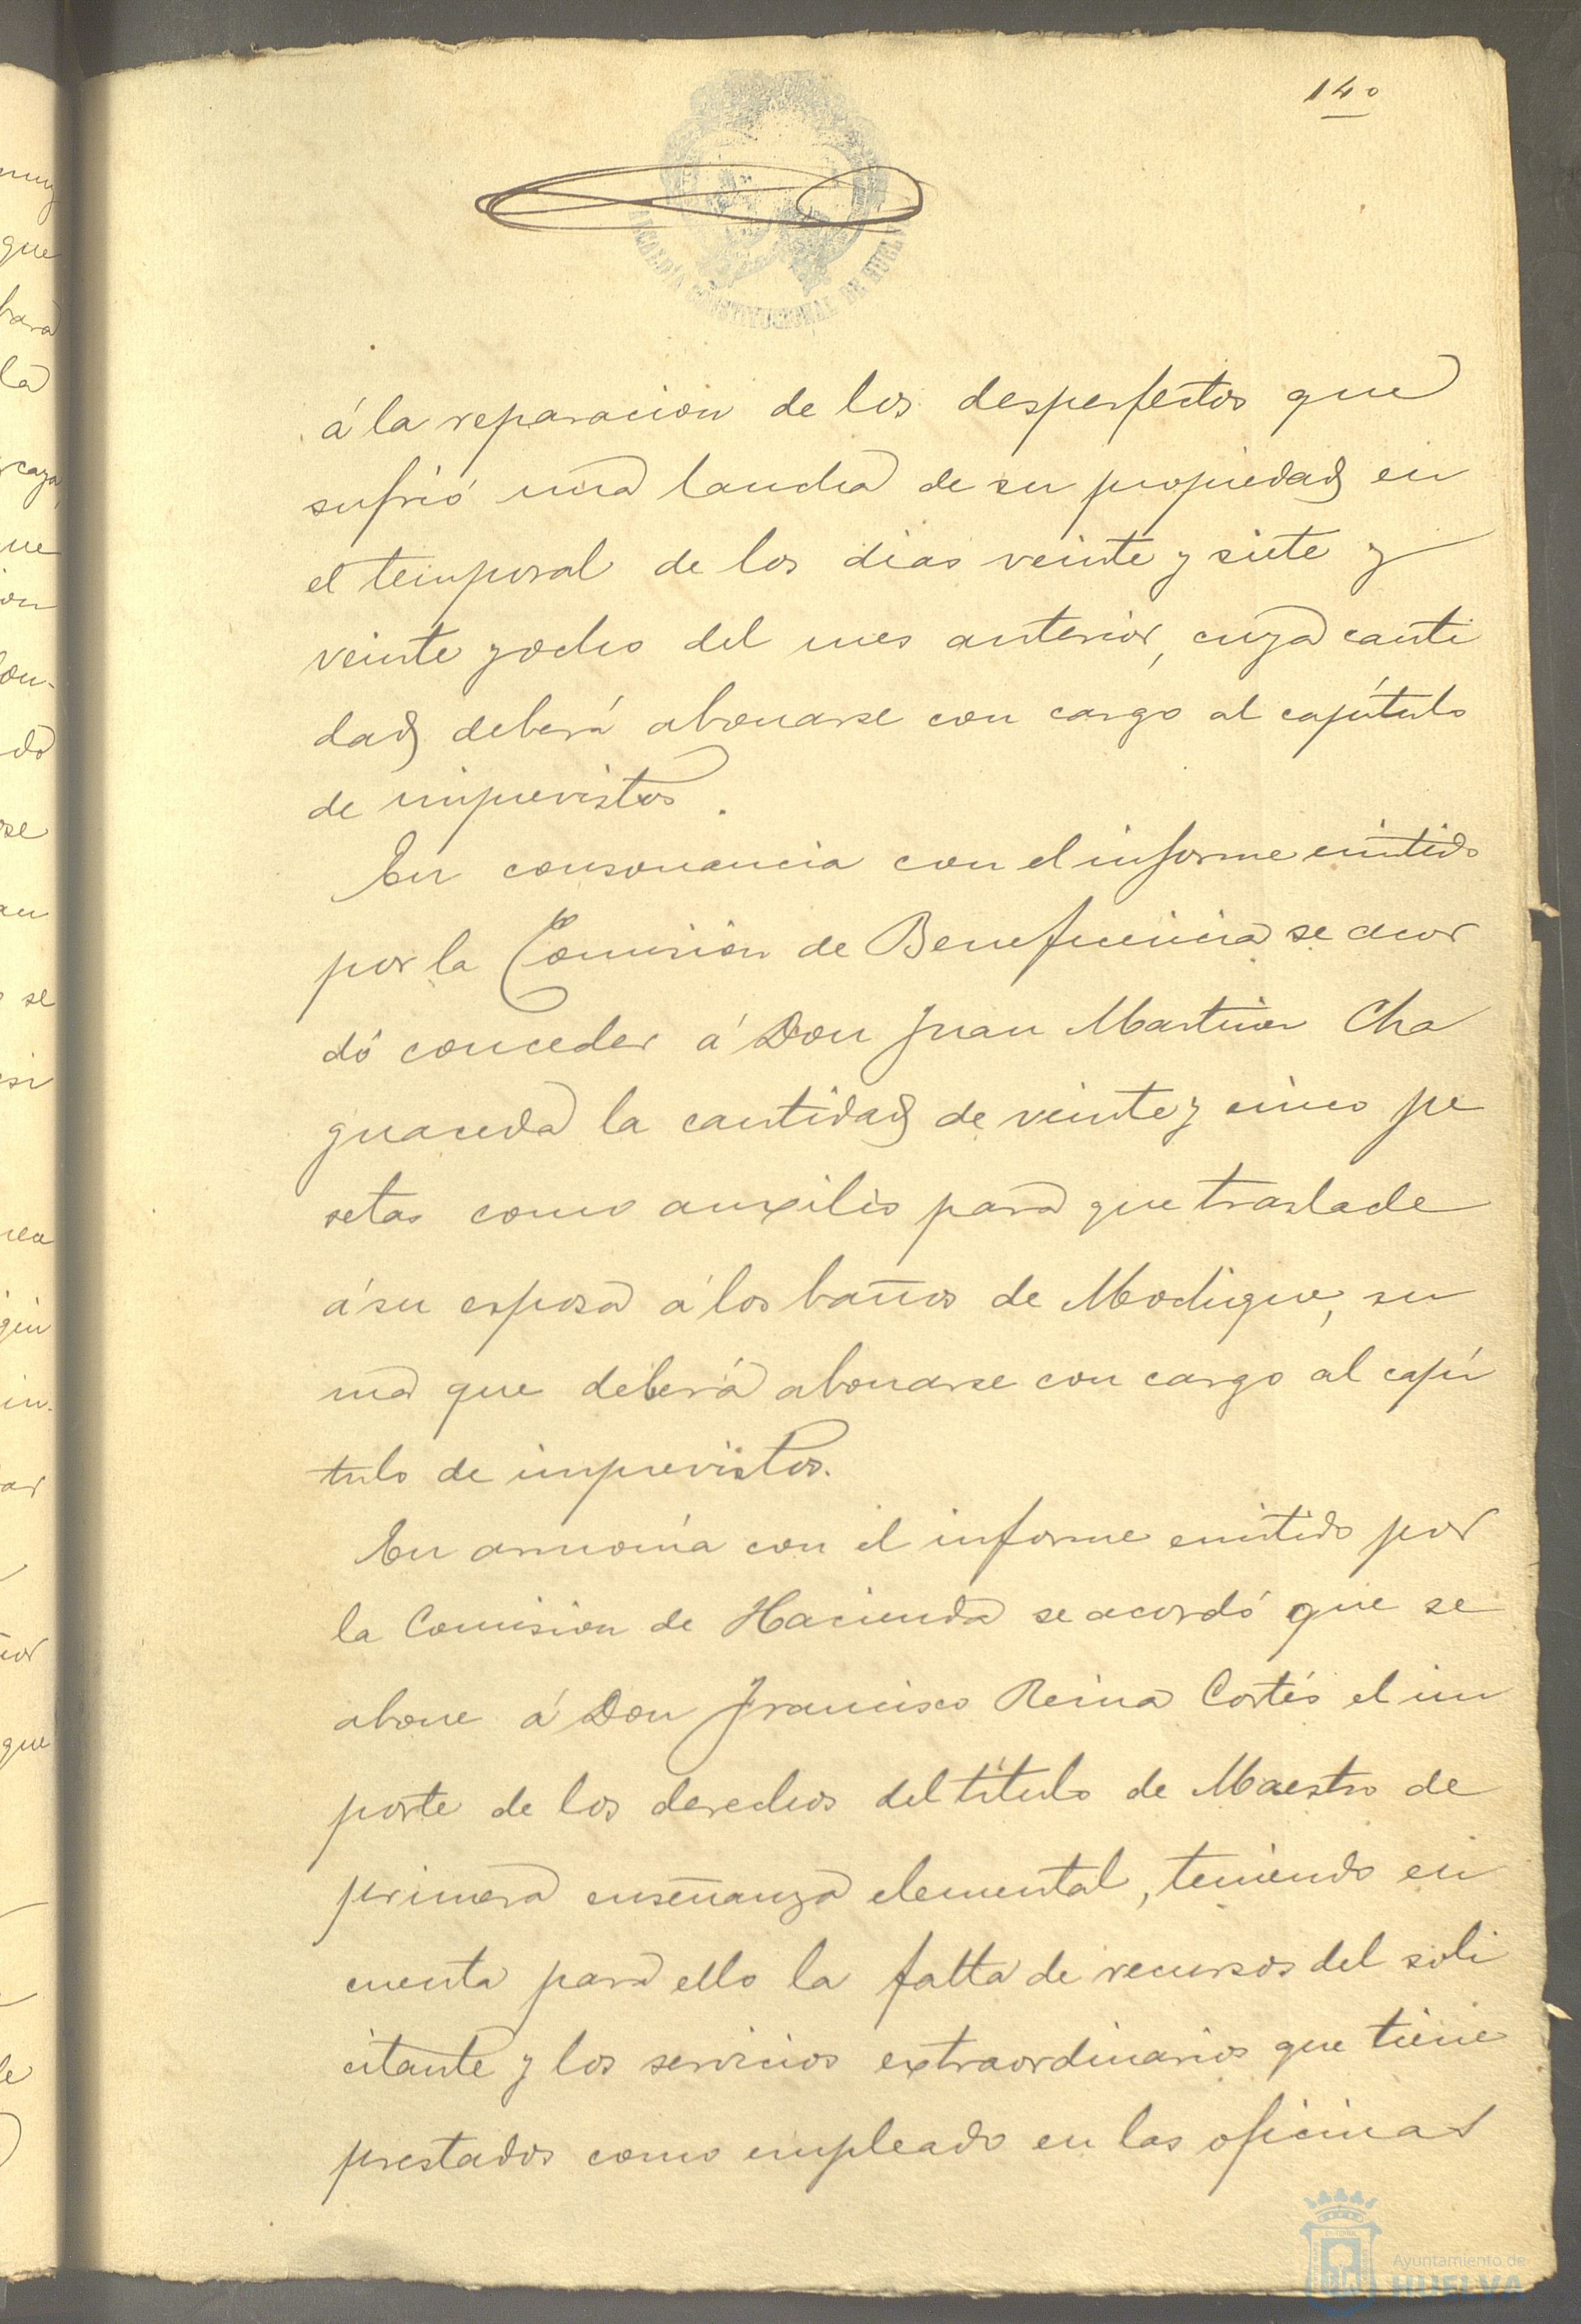 140
ALCALDIA CONSTITUCIONAL DE HUELVA
á la reparacion de los desperfectos que
sufrió una lancha de su propiedad en
el temporal de los dias veinte y siete y
veinte y ocho del mes anterior, cuya canti
dad deberá abonarse con cargo al capítulo
de imprevistos.
En consonancia con el informe emitido
por la Comision de Beneficencia se acor
dó conceder á Don Juan Martin Cha
guaceda la cantidad de veinte y cinco pe
setas como auxilio para que traslade
á su esposa á los baños de , su
ma que deberá abonarse con cargo al capí
tulo de imprevistos.
En armonía con el informe emitido por
la Comision de Hacienda se acordó que se
abone á Don Francisco Reina Cortés el im
porte de los derechos del título de Maestro de
primera enseñanza elemental, teniendo en
cuenta para ello la falta de recursos del soli
citante y los servicios extraordinarios que tiene
prestados como empleado en las oficinas
Ayuntamiento de
HUELVA